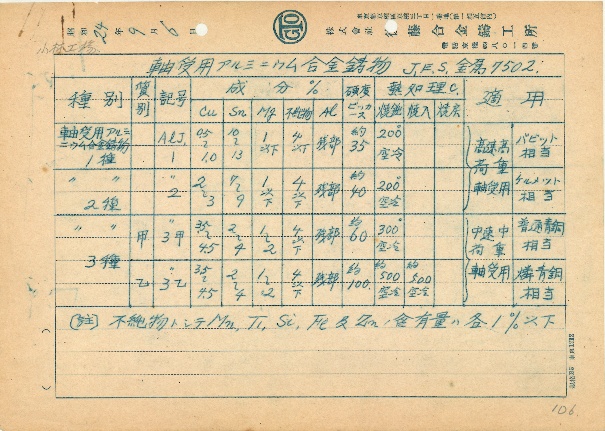 昭和24年9月6日
株式会社 藤合金鋳工所
小林工場
軸受用アルミニウム合金鋳物 J.E.S.金属7502.
種別 質別 記号 成分% 硬度ビッカース 熱処理℃. 適用
Cu Sn Mg 不純物 Al 焼鈍 焼入 焼戻
軸受用アルミニウム合金鋳物 1種 AlJ, 1 0.5~1.0 10~13 1以下 4以下 残部 約35 200°空冷 高速高荷重軸受用 バビット相当
〃 〃 2種 〃 2 2~3 7~9 1以下 4以下 残部 約40 200°空冷 ケルメット相当
〃 〃 3種 甲 〃 3甲 3.5~4.5 2~4 1~2 4以下 残部 約60 300°空冷 中速中荷重軸受用 普通青銅相当
乙 〃 3乙 3.5~4.5 2~4 1~2 4以下 残部 約100 約500空冷 約500空冷 燐青銅相当
(註) 不純物トシテMn, Ti, Si, Fe及Znノ含有量ハ各1%以下
106.